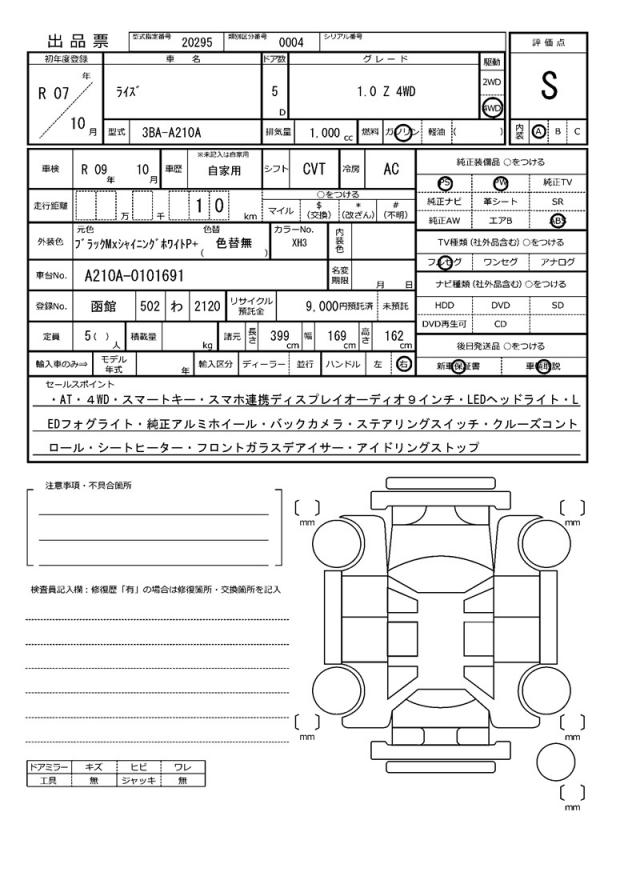 出品票 型式指定番号 20295 類別区分番号 0004 シリアル番号
評価点
初年度登録 車名 ドア数 グレード 駆動
R 07 年 10 月 ライズ 5 D 1.0 Z 4WD 2WD 4WD
S
型式 3BA-A210A 排気量 1.000 cc 燃料 ガソリン 軽油 ( )
内装 A B C
車検 R 09 年 10 月 車歴 ※未記入は自家用 自家用 シフト CVT 冷房 AC
純正装備品 ○をつける
PS PW 純正TV
純正ナビ 革シート SR
純正AW エアB ABS
走行距離 万 千 1 0 km
○をつける
マイル $ (交換) * (改ざん) # (不明)
外装色 元色 ブラックMxシャイニングホワイトP+ 色替 ( 色替無 ) カラーNo. XH3 内装色
TV種類 (社外品含む) ○をつける
フルセグ ワンセグ アナログ
車台No. A210A-0101691 名変期限 月 日
ナビ種類 (社外品含む) ○をつける
HDD DVD SD
DVD再生可 CD
登録No. 函館 502 わ 2120 リサイクル預託金 9,000円預託済 未預託
定員 5 ( ) 人 積載量 kg 諸元 長さ 399 cm 幅 169 cm 高さ 162 cm
後日発送品 ○をつける
新車保証書 車輌取説
輸入車のみ⇒ モデル年式 年 輸入区分 ディーラー 並行 ハンドル 左 右
セールスポイント
・AT・4WD・スマートキー・スマホ連携ディスプレイオーディオ9インチ・LEDヘッドライト・L
EDフォグライト・純正アルミホイール・バックカメラ・ステアリングスイッチ・クルーズコント
ロール・シートヒーター・フロントガラスデアイサー・アイドリングストップ
注意事項・不具合箇所
検査員記入欄：修復歴「有」の場合は修復箇所・交換箇所を記入
mm
mm
mm
mm
mm
ドアミラー キズ ヒビ ワレ
工具 無 ジャッキ 無